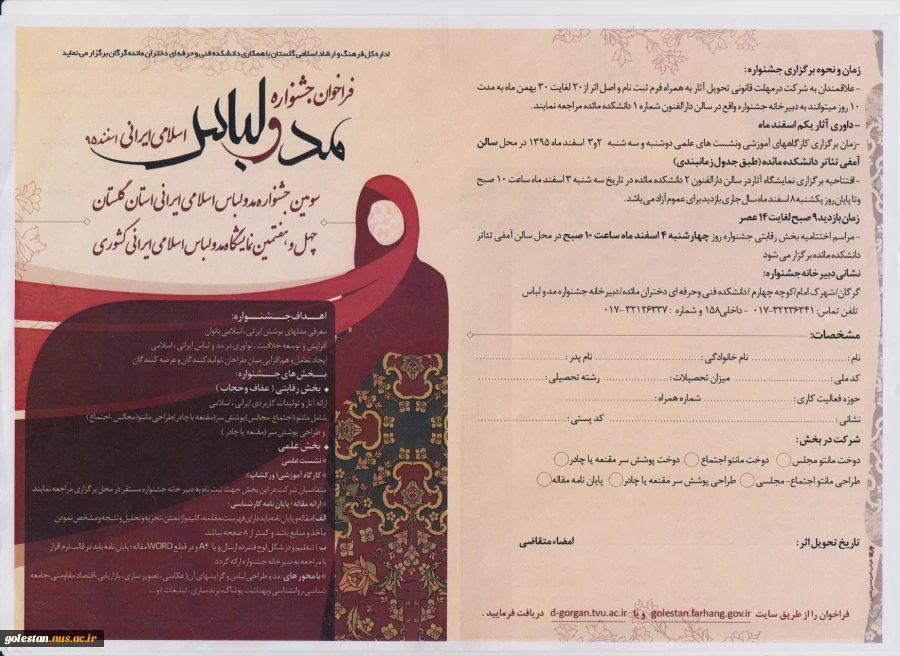 اداره کل فرهنگ و ارشاد اسلامی گلستان با همکاری دانشکده فنی و حرفه ای دختران مائده گرگان برگزار می نماید
فراخوان جشنواره
مد و لباس
اسلامی ایرانی اسفند ۹۵
سومین جشنواره مد و لباس اسلامی ایرانی استان گلستان
چهل و هفتمین نمایشگاه مد و لباس اسلامی ایرانی کشوری
اهداف جشنواره:
معرفی مدلهای پوشش ایرانی ، اسلامی بانوان
افزایش و توسعه خلاقیت ، نوآوری در مد و لباس ایرانی ، اسلامی
ایجاد تعامل و هم افزایی میان طراحان ،تولید کنندگان و عرضه کنندگان
بخش های جشنواره:
بخش رقابتی ( عفاف و حجاب )
ارائه آثار و تولیدات کاربردی ایرانی ، اسلامی
شامل مانتو (اجتماع-مجالس) پوشش سر (مقنعه یا چادر) طراحی مانتو (مجالس ،اجتماع )
و طراحی پوشش سر (مقنعه یا چادر )
بخش علمی
* نشست علمی
* کارگاه آموزشی( ورکشاپ)*
متقاضیان شرکت در این بخش جهت ثبت نام به دبیر خانه جشنواره مستقر در محل برگزاری مراجعه نمایند.
* ارائه مقاله : پایان نامه کارشناسی:
الف) مقاله و پایان نامه باید دارای فهرست،مقدمه، کلید واژه،متن،تجزیه و تحلیل و نتیجه و مشخص نمودن
مأخذ و منابع باشد و کمتر از ۸ صفحه نباشد.
ب ) تنظیم و در شکل لوح فشرده ارسال و یا A۴ و در قطع WORD مقاله؛ پایان نامه باید در قالب نرم افزار
با مراجعه به دبیر خانه جشنواره ارائه گردد.
* با محور های: مد و طراحی لباس و گرایشهای آن( عکاسی ، تصویر سازی ، بازاریابی ،اقتصاد مقاومتی،جامعه
شناسی روانشناسی و بهداشت پوشاک،برند سازی ، تبلیغات و ...
زمان و نحوه برگزاری جشنواره:
-علاقمندان به شرکت در مهلت قانونی تحویل آثار به همراه فرم ثبت نام و اصل اثر از ۲۰ لغایت ۳۰ بهمن ماه به مدت
۱۰ روز میتوانند به دبیر خانه جشنواره واقع در سالن دارالفنون شماره ۱ دانشکده مائده مراجعه نمایند.
-داوری آثار یکم اسفند ماه
-زمان برگزاری کارگاههای آموزشی و نشست های علمی دوشنبه و سه شنبه ۲و۳ اسفند ماه ۱۳۹۵ در محل سالن
آمفی تئاتر دانشکده مائده (طبق جدول زمانبندی)
-افتتاحیه برگزاری نمایشگاه آثار در سالن دارالفنون ۲ دانشکده مائده در تاریخ سه شنبه ۳ اسفند ماه ساعت ۱۰ صبح
و تا پایان روز یکشنبه ۸ اسفند ماه سال جاری بازدید برای عموم آزاد می باشد.
زمان بازدید ۹ صبح لغایت ۱۴ عصر
-مراسم اختتامیه بخش رقابتی جشنواره روز چهارشنبه ۴ اسفند ماه ساعت ۱۰ صبح در محل سالن آمفی تئاتر
دانشکده مائده برگزار می شود
نشانی دبیر خانه جشنواره:
گرگان/شهرک امام/کوچه چهارم /دانشکده فنی و حرفه ای دختران مائده/دبیر خانه جشنواره مد و لباس
تلفن تماس: ۳۲۲۳۶۳۴۱-۰۱۷ - داخلی۱۵۸ و شماره : ۳۲۱۲۶۳۳۷ -۰۱۷
مشخصات:
نام: نام خانوادگی: نام پدر:
کد ملی: میزان تحصیلات: رشته تحصیلی:
حوزه فعالیت کاری: شماره همراه:
نشانی: کد پستی:
شرکت در بخش:
دوخت مانتو مجلس دوخت مانتو اجتماع دوخت پوشش سر مقنعه یا چادر
طراحی مانتو اجتماع- مجلسی طراحی پوشش سر مقنعه یا چادر پایان نامه مقاله
تاریخ تحویل اثر: امضاء متقاضی
فراخوان را از طریق سایت golestan.farhang.gov.ir و یا d-gorgan.tvu.ac.ir دریافت فرمایید .
golestan.nus.ac.ir